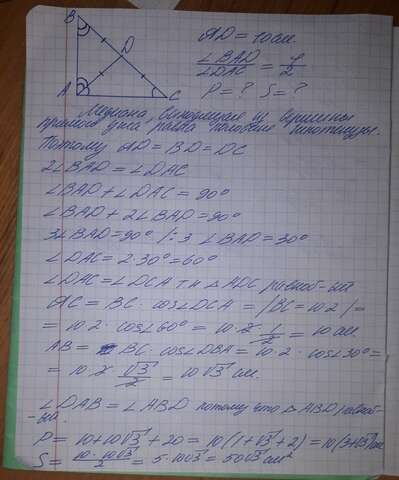 B
D
A
C
AD = 10 см
∠BAD / ∠DAC = 1/2
P = ? S = ?
Медиана, выходящая из вершины
прямого угла, равна половине гипотенузы.
Поэтому AD = BD = DC
2∠BAD = ∠DAC
∠BAD + ∠DAC = 90°
∠BAD + 2∠BAD = 90°
3∠BAD = 90° /:3 ∠BAD = 30°
∠DAC = 2·30° = 60°
∠DAC = ∠DCA т.к △ADC равноб-ый
AC = BC · cos∠DCA = /BC = 10·2/ =
= 10·2 · cos∠60° = 10·2 · 1/2 = 10 см.
AB = BC · cos∠DBA = 10·2 · cos∠30° =
= 10·2 · √3/2 = 10√3 см.
∠DAB = ∠ABD потому что △ABD равноб-
-ый.
P = 10 + 10√3 + 20 = 10(1+√3+2) = 10(3+√3) см
S = 10·10√3/2 = 5·10√3 = 50√3 см²